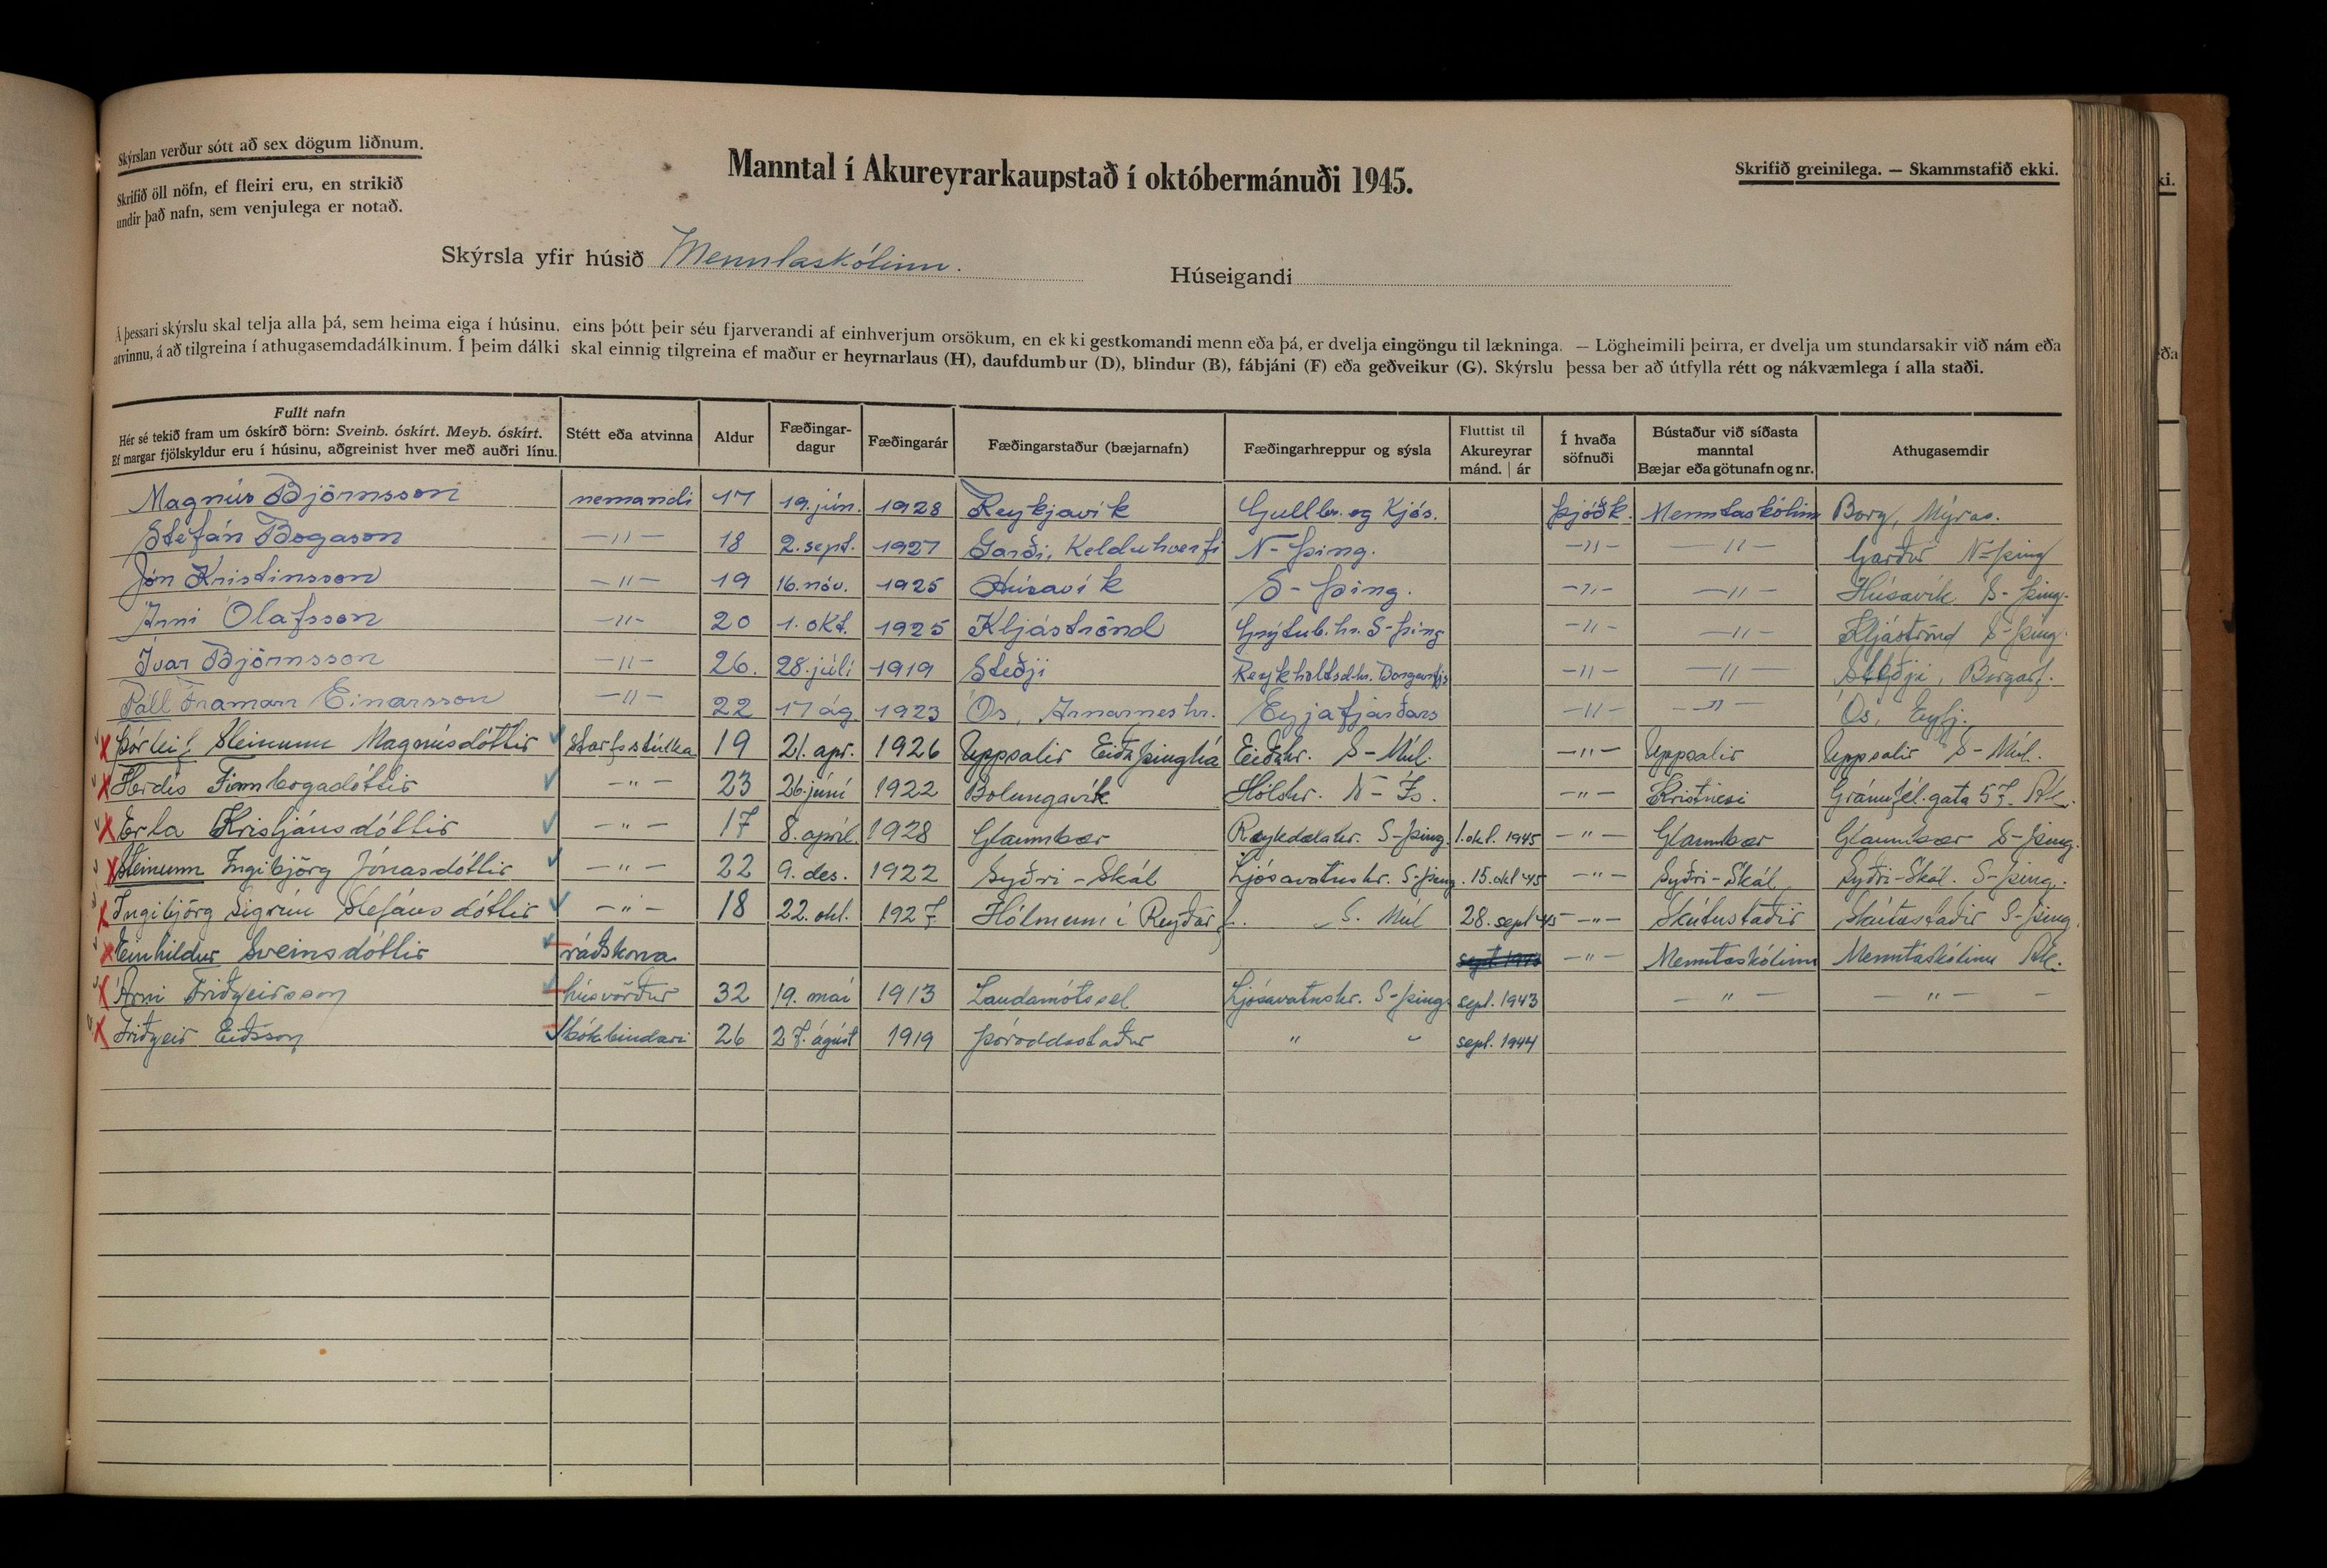 Skýrslan verður sótt að sex dögum liðnum.
Skrifið öll nöfn, ef fleiri eru, en strikið
undir það nafn, sem venjulega er notað.
Manntal í Akureyrarkaupstað í októbermánuði 1945.
Skrifið greinilega. — Skammstafið ekki.
Skýrsla yfir húsið Menntaskólinn.
Húseigandi
Á þessari skýrslu skal telja alla þá, sem heima eiga í húsinu, eins þótt þeir séu fjarverandi af einhverjum orsökum, en ekki gestkomandi menn eða þá, er dvelja eingöngu til lækninga. — Lögheimili þeirra, er dvelja um stundarsakir við nám eða
atvinnu, á að tilgreina í athugasemdadálkinum. Í þeim dálki skal einnig tilgreina ef maður er heyrnarlaus (H), daufdumbur (D), blindur (B), fábjáni (F) eða geðveikur (G). Skýrslu þessa ber að útfylla rétt og nákvæmlega í alla staði.
Fullt nafn
Hér sé tekið fram um óskírð börn: Sveinb. óskírt. Meyb. óskírt.
Ef margar fjölskyldur eru í húsinu, aðgreinist hver með auðri línu.
Stétt eða atvinna
Aldur
Fæðingar-
dagur
Fæðingarár
Fæðingarstaður (bæjarnafn)
Fæðingarhreppur og sýsla
Fluttist til
Akureyrar
mánd. | ár
Í hvaða
söfnuði
Bústaður við síðasta
manntal
Bæjar eða götunafn og nr.
Athugasemdir
Magnús Björnsson nemandi 17 19. jún. 1928 Reykjavík Gullbr. og Kjós. Þjóðk. Menntaskólinn Borg, Mýras.
Stefán Bogason —"— 18 2. sept. 1927 Garði, Kelduhverfi N-Þing. —"— —"— Garður N-Þing
Jón Kristinsson —"— 19 16. nóv. 1925 Húsavík S-Þing. —"— —"— Húsavík S-Þing.
Árni Ólafsson —"— 20 1. okt. 1925 Kljáströnd Grýtub.hr. S-Þing —"— —"— Kljáströnd S-Þing.
Ívar Björnsson —"— 26. 28. júlí 1919 Steðji Reykholtsd.hr. Borgarfjs —"— —"— Steðji, Borgarf.
Páll Framarr Einarsson —"— 22 17 ág 1923 Ós, Arnarneshr. Eyjafjarðars —"— —"— Ós, Eyfj.
Þórleif Steinunn Magnúsdóttir starfsstúlka 19 21. apr. 1926 Uppsalir Eiðaþinghá Eiðahr. S-Múl. —"— Uppsalir Uppsalir S-Múl.
Herdís Finnbogadóttir —"— 23 26. júní 1922 Bolungavík Hólshr. N-Ís. —"— Kristnesi Gránufél.gata 57. Ak.
Erla Kristjánsdóttir —"— 17 8. apríl 1928 Glaumbær Reykdælahr. S-Þing. 1. okt. 1945 —"— Glaumbær Glaumbær S-Þing.
Steinunn Ingibjörg Jónasdóttir —"— 22 9. des. 1922 Syðri-Skál Ljósavatnshr. S-Þing. 15. okt '45 —"— Syðri-Skál Syðri-Skál. S-Þing.
Ingibjörg Sigrún Stefánsdóttir —"— 18 22. okt. 1927 Hólmum í Reyðarf. S. Múl 28. sept '45 —"— Skútustaðir Skútustaðir S-Þing.
Einhildur Sveinsdóttir ráðskona sept —"— Menntaskólinn Menntaskólinn Ak.
Árni Friðgeirsson húsvörður 32 19. maí 1913 Landamótssel Ljósavatnshr. S-Þing. sept. 1943 —"— —"—
Friðgeir Eiðsson bókbindari 26 27. ágúst 1919 Þóroddsstaður " " sept. 1944